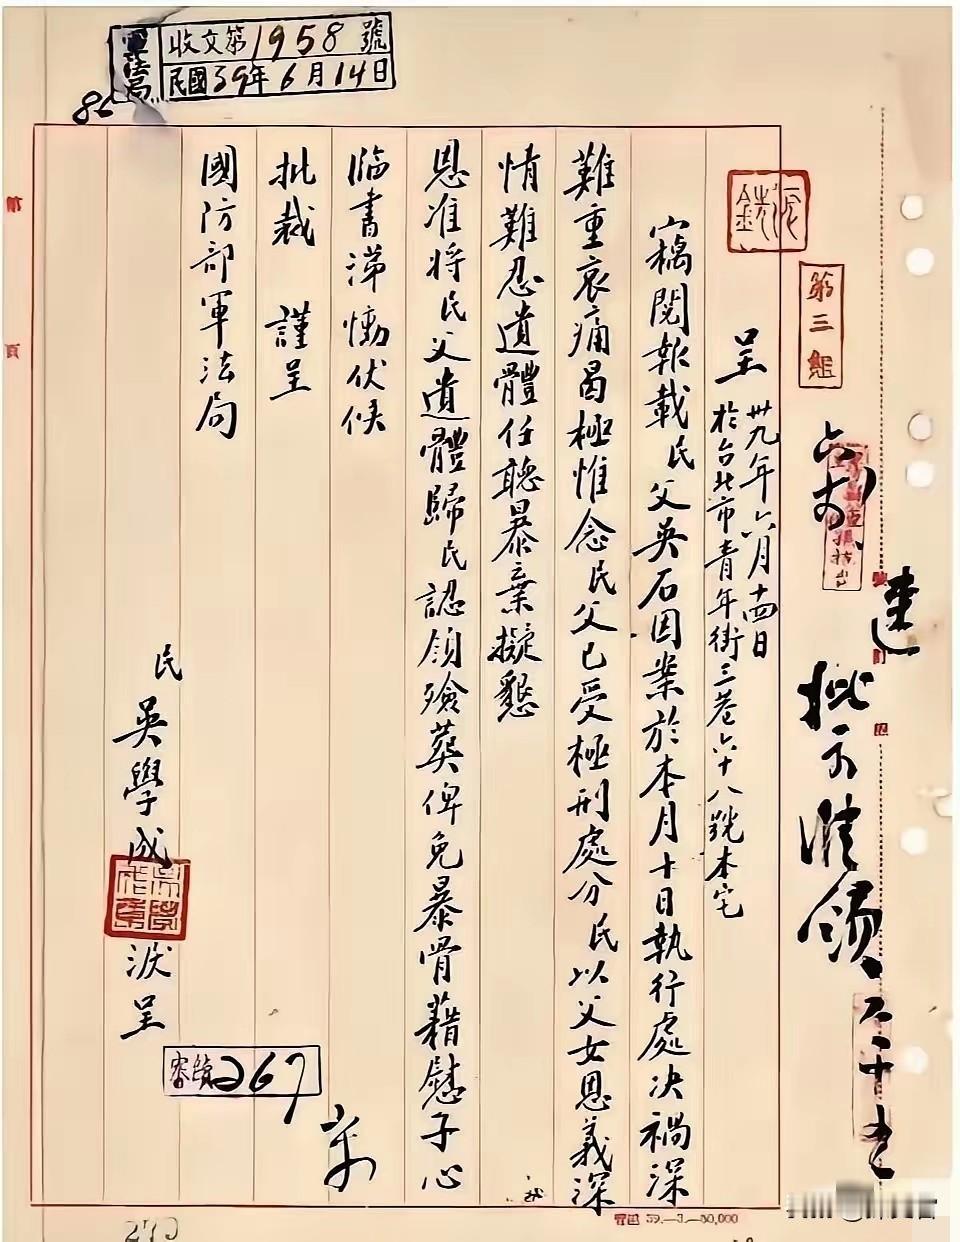 軍法局
收文第1958號
民國39年6月14日
86
第三組
速
批示准領
六 十五
呈
卅九年六月十四日
於台北市青年街三巷六十八號本宅
竊閱報載民父吳石因案於本月十日執行處决禍深
難重哀痛曷極惟念民父已受極刑處分民以父女恩義深
情難忍遺體任聽暴棄擬懇
恩准將民父遺體歸民認領殮葬俾免暴骨藉慰子心
臨書涕慟伏候
批裁 謹呈
國防部軍法局
民 吳學成 淚呈
267
第 頁
39.—3.—50,000
270